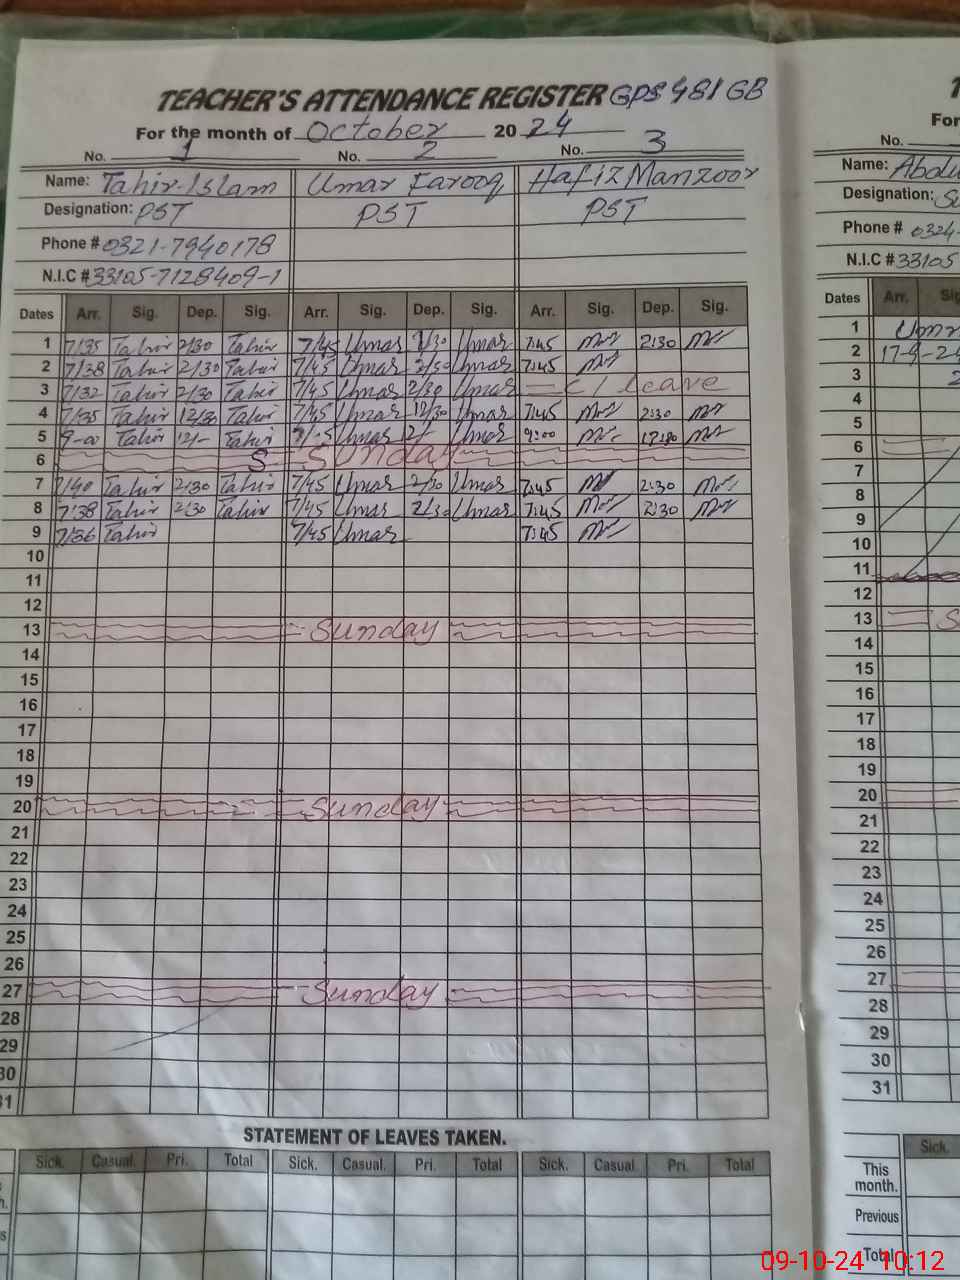 TEACHER'S ATTENDANCE REGISTER GPS 481 GB
For the month of October 20 24
No. 1 No. 2 No. 3
Name: Tahir Islam Umar Farooq Hafiz Manzoor
Designation: PST PST PST
Phone # 0321-7940178
N.I.C # 33105-7128409-1
Dates Arr. Sig. Dep. Sig. Arr. Sig. Dep. Sig. Arr. Sig. Dep. Sig.
1 7/35 Tahir 2/30 Tahir 7/45 Umar 2/30 Umar 7:45 2:30
2 7/38 Tahir 2/30 Tahir 7/45 Umar 2/30 Umar 7:45
3 7/32 Tahir 2/30 Tahir 7/45 Umar 2/30 Umar C/ leave
4 7/35 Tahir 12/30 Tahir 7/45 Umar 12/30 Umar 7:45 2:30
5 9-00 Tahir 12/- Tahir Umar Umar 9:00
6 S Sunday
7 7/40 Tahir 2/30 Tahir 7/45 Umar 2/30 Umar 7:45 2:30
8 7/38 Tahir 2/30 Tahir 7/45 Umar 2/30 Umar 7:45 2:30
9 7/36 Tahir 7/45 Umar 7:45
10
11
12
13 Sunday
14
15
16
17
18
19
20 Sunday
21
22
23
24
25
26
27 Sunday
28
29
30
31
STATEMENT OF LEAVES TAKEN.
Sick. Casual. Pri. Total Sick. Casual. Pri. Total Sick. Casual Pri. Total
For
No.
Name: Abdu
Designation:
Phone # 0324-
N.I.C # 33105
Dates Arr. Sig
1 Umr
2 17-9-24
3
4
5
6
7
8
9
10
11
12
13 S
14
15
16
17
18
19
20
21
22
23
24
25
26
27
28
29
30
31
Sick.
This
month.
Previous
Total
09-10-24 10:12